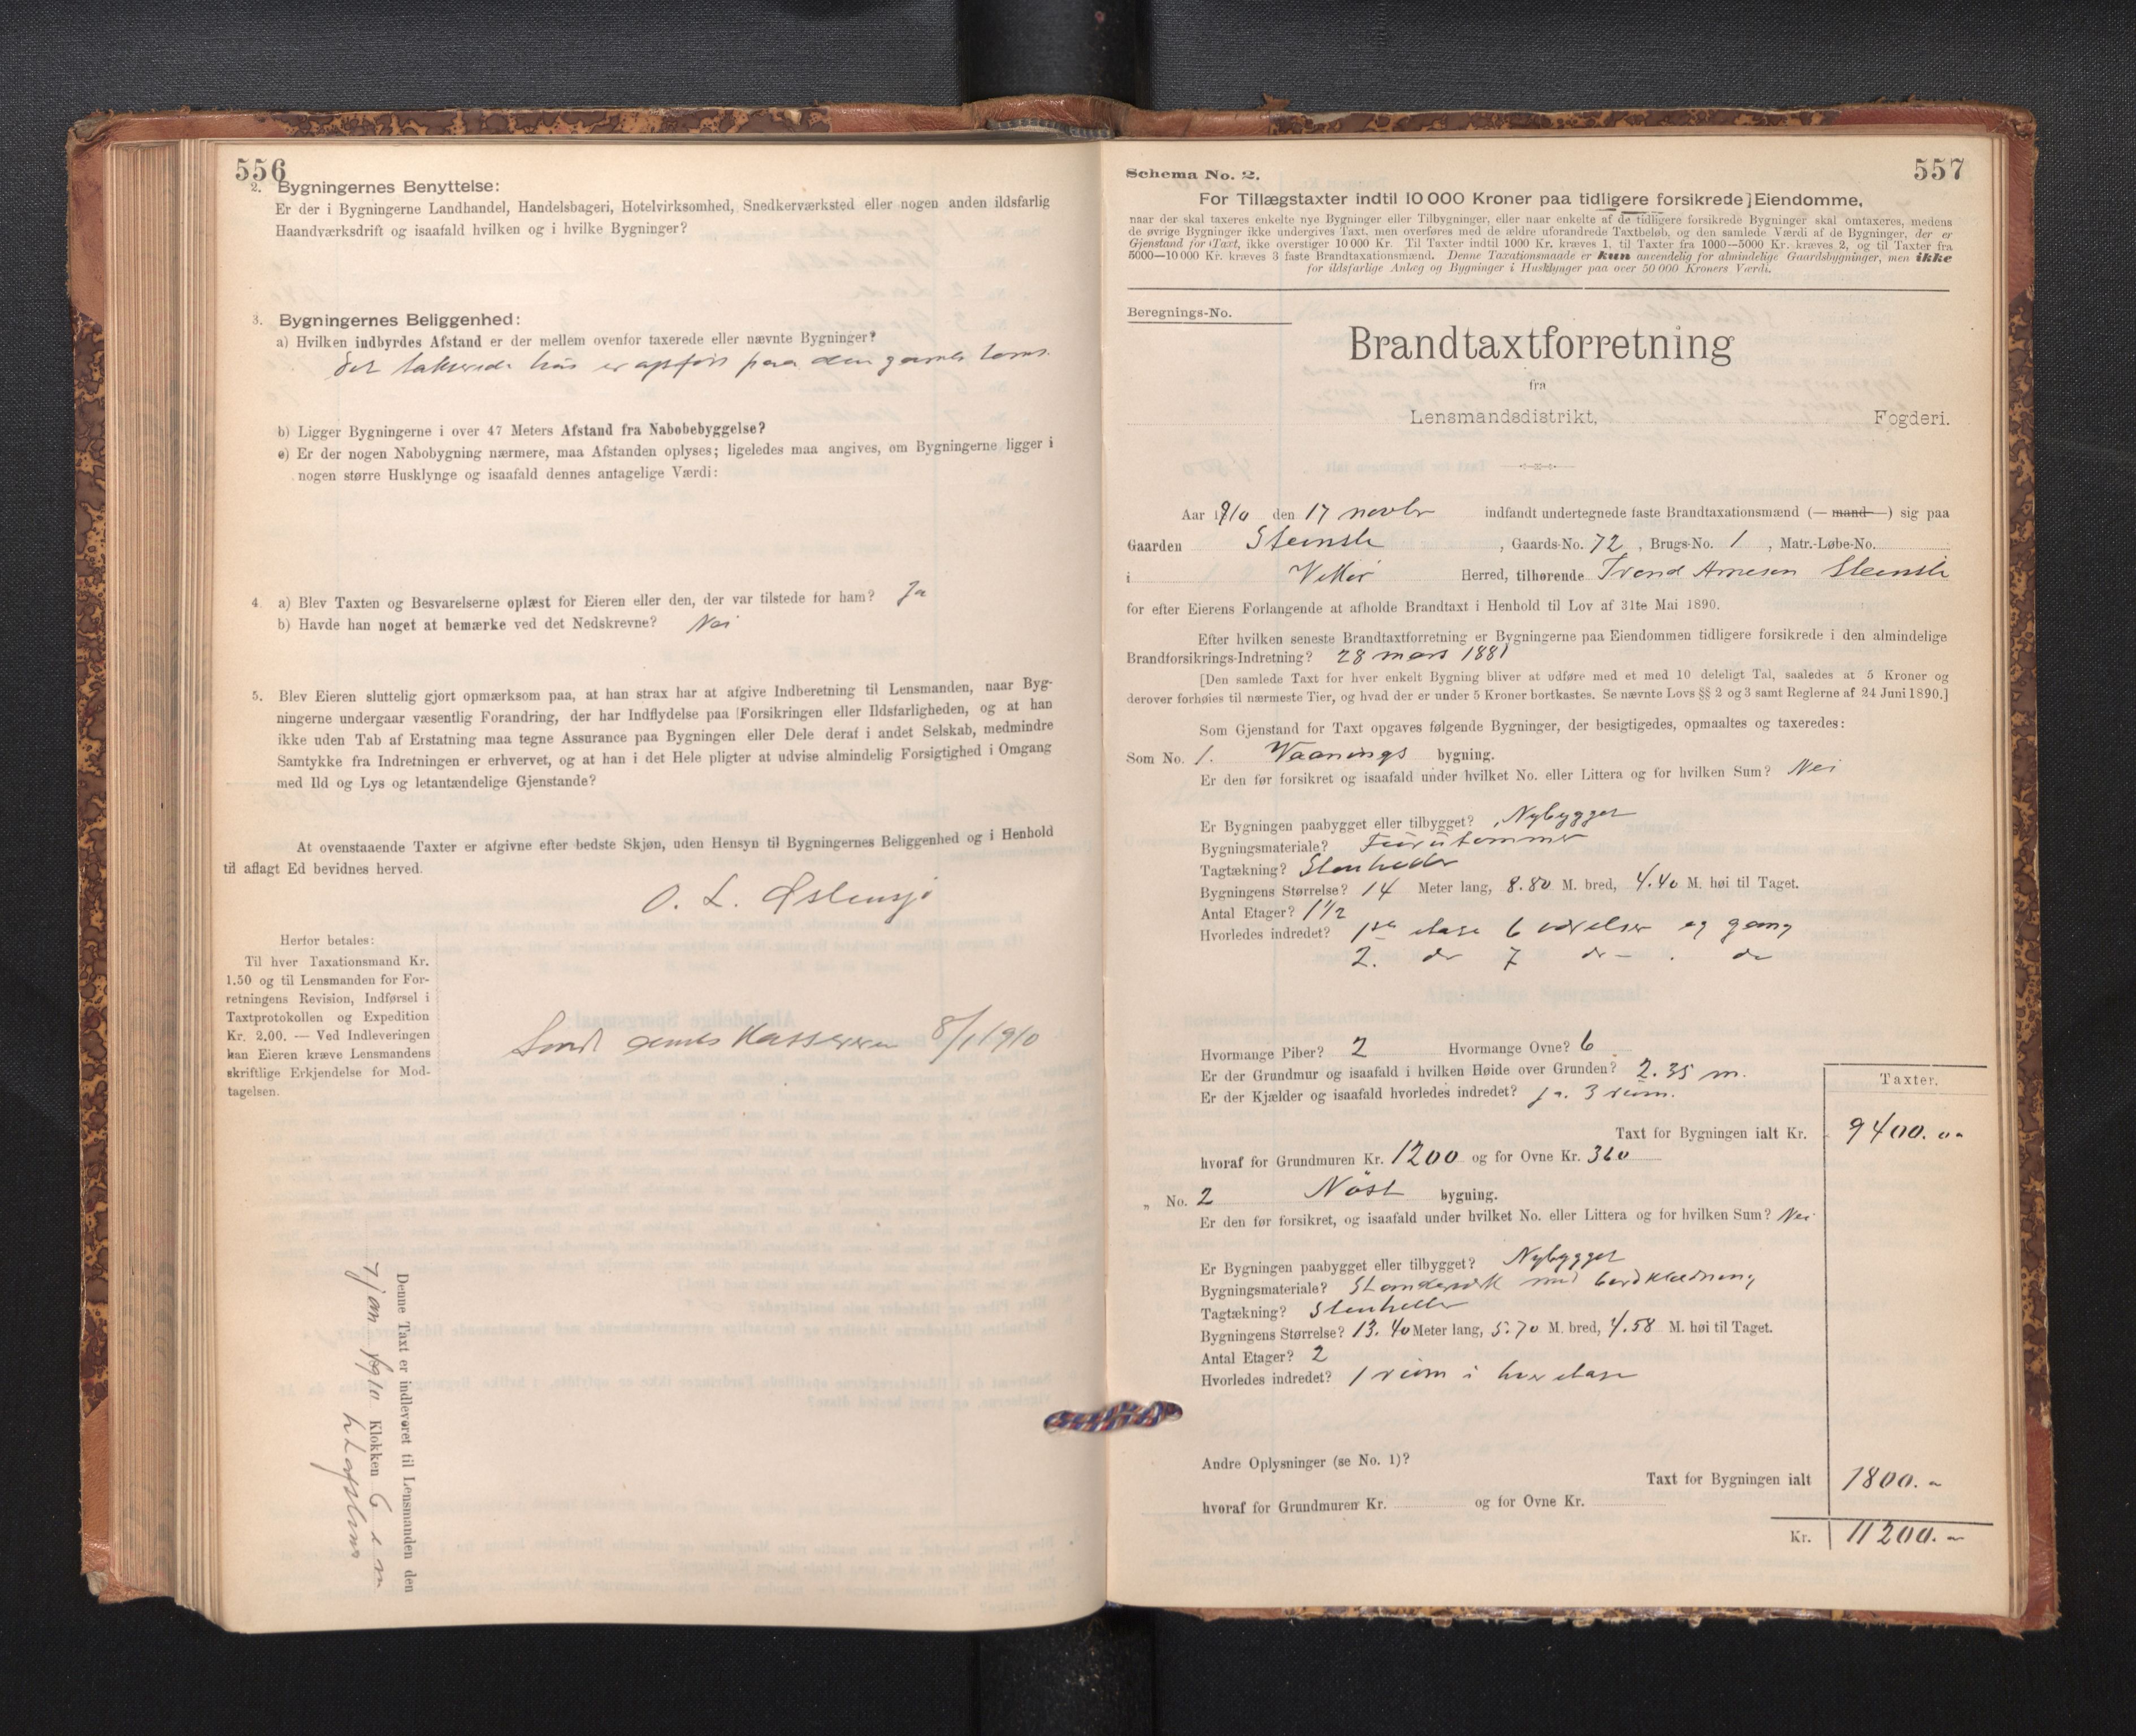 556
2. Bygningernes Benyttelse:
Er der i Bygningerne Landhandel, Handelsbageri, Hotelvirksomhed, Snedkerværksted eller nogen anden ildsfarlig
Haandværksdrift og isaafald hvilken og i hvilke Bygninger?
3. Bygningernes Beliggenhed:
a) Hvilken indbyrdes Afstand er der mellem ovenfor taxerede eller nævnte Bygninger?
det takserede hus er opført paa den gamle tomt.
b) Ligger Bygningerne i over 47 Meters Afstand fra Nabobebyggelse?
c) Er der nogen Nabobygning nærmere, maa Afstanden oplyses; ligeledes maa angives, om Bygningerne ligger i
nogen større Husklynge og isaafald dennes antagelige Værdi:
4. a) Blev Taxten og Besvarelserne oplæst for Eieren eller den, der var tilstede for ham? Ja
b) Havde han noget at bemærke ved det Nedskrevne? Nei
5. Blev Eieren sluttelig gjort opmærksom paa, at han strax har at afgive Indberetning til Lensmanden, naar Byg-
ningerne undergaar væsentlig Forandring, der har Indflydelse paa Forsikringen eller Ildsfarligheden, og at han
ikke uden Tab af Erstatning maa tegne Assurance paa Bygningen eller Dele deraf i andet Selskab, medmindre
Samtykke fra Indretningen er erhvervet, og at han i det Hele pligter at udvise almindelig Forsigtighed i Omgang
med Ild og Lys og letantændelige Gjenstande?
At ovenstaaende Taxter er afgivne efter bedste Skjøn, uden Hensyn til Bygningernes Beliggenhed og i Henhold
til aflagt Ed bevidnes herved.
O. L. Østensjø
Herfor betales:
Til hver Taxationsmand Kr.
1.50 og til Lensmanden for For-
retningens Revision, Indførsel i
Taxtprotokollen og Expedition
Kr. 2.00. — Ved Indleveringen
kan Eieren kræve Lensmandens
skriftlige Erkjendelse for Mod-
tagelsen.
Sendt Kassereren 8/1 1910
Denne Taxt er indleveret til Lensmanden den
7 jan 1910 Klokken 6 e m
557
Schema No. 2.
For Tillægstaxter indtil 10 000 Kroner paa tidligere forsikrede Eiendomme,
naar der skal taxeres enkelte nye Bygninger eller Tilbygninger, eller naar enkelte af de tidligere forsikrede Bygninger skal omtaxeres, medens
de øvrige Bygninger ikke undergives Taxt, men overføres med de ældre uforandrede Taxtbeløb, og den samlede Værdi af de Bygninger, der er
Gjenstand for Taxt, ikke overstiger 10 000 Kr. Til Taxter indtil 1000 Kr. kræves 1, til Taxter fra 1000—5000 Kr. kræves 2, og til Taxter fra
5000—10 000 Kr. kræves 3 faste Brandtaxationsmænd. Denne Taxationsmaade er kun anvendelig for almindelige Gaardsbygninger, men ikke
for ildsfarlige Anlæg og Bygninger i Husklynger paa over 50 000 Kroners Værdi.
Beregnings-No.
Brandtaxtforretning
fra
Lensmandsdistrikt, Fogderi.
Aar 1910 den 17 novbr indfandt undertegnede faste Brandtaxationsmænd (— mand —) sig paa
Gaarden Steinsle, Gaards-No. 72, Brugs-No. 1, Matr.-Løbe-No.
i Vikør Herred, tilhørende Trond Arnesen Steinsle
for efter Eierens Forlangende at afholde Brandtaxt i Henhold til Lov af 31te Mai 1890.
Efter hvilken seneste Brandtaxtforretning er Bygningerne paa Eiendommen tidligere forsikrede i den almindelige
Brandforsikrings-Indretning? 28 mars 1881
[Den samlede Taxt for hver enkelt Bygning bliver at udføre med et med 10 deleligt Tal, saaledes at 5 Kroner og
derover forhøies til nærmeste Tier, og hvad der er under 5 Kroner bortkastes. Se nævnte Lovs §§ 2 og 3 samt Reglerne af 24 Juni 1890.]
Som Gjenstand for Taxt opgaves følgende Bygninger, der besigtigedes, opmaaltes og taxeredes:
Som No. 1. Vaanings bygning.
Er den før forsikret og isaafald under hvilket No. eller Littera og for hvilken Sum? Nei
Er Bygningen paabygget eller tilbygget? Nybygget
Bygningsmateriale? Furutømmer
Tagtækning? Stenheller
Bygningens Størrelse? 14 Meter lang, 8.80 M. bred, 4.40 M. høi til Taget.
Antal Etager? 1 1/2
Hvorledes indredet? 1ste etage 6 værelser og gang
2. do 7 do - . do
Hvormange Piber? 2 Hvormange Ovne? 6
Er der Grundmur og isaafald i hvilken Høide over Grunden? 2.35 m.
Er der Kjælder og isaafald hvorledes indredet? ja. 3 rum.
Taxter.
Taxt for Bygningen ialt Kr. 9400.00
hvoraf for Grundmuren Kr. 1200 og for Ovne Kr. 360
„ No. 2 Nøst bygning.
Er den før forsikret, og isaafald under hvilket No. eller Littera og for hvilken Sum? Nei
Er Bygningen paabygget eller tilbygget? Nybygget
Bygningsmateriale? Standerværk med bordklædning
Tagtækning? Stenheller
Bygningens Størrelse? 13.40 Meter lang, 5.70 M. bred, 4.58 M. høi til Taget.
Antal Etager? 2
Hvorledes indredet? 1 rum i hver etage
Andre Oplysninger (se No. 1)?
Taxt for Bygningen ialt 1800.-
hvoraf for Grundmuren Kr. og for Ovne Kr.
Kr. 11200.-